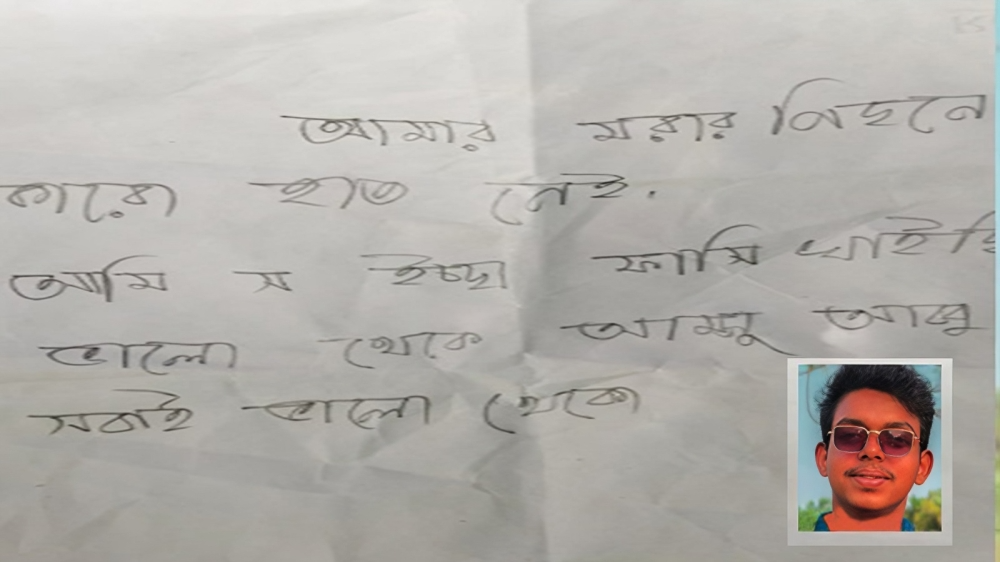 আমার মরার পিছনে
কারো হাত নেই.
আমি স ইচ্ছা ফাসি খাইছি
ভালো থেকো আম্মু আব্বু
সবাই ভালো থেকো